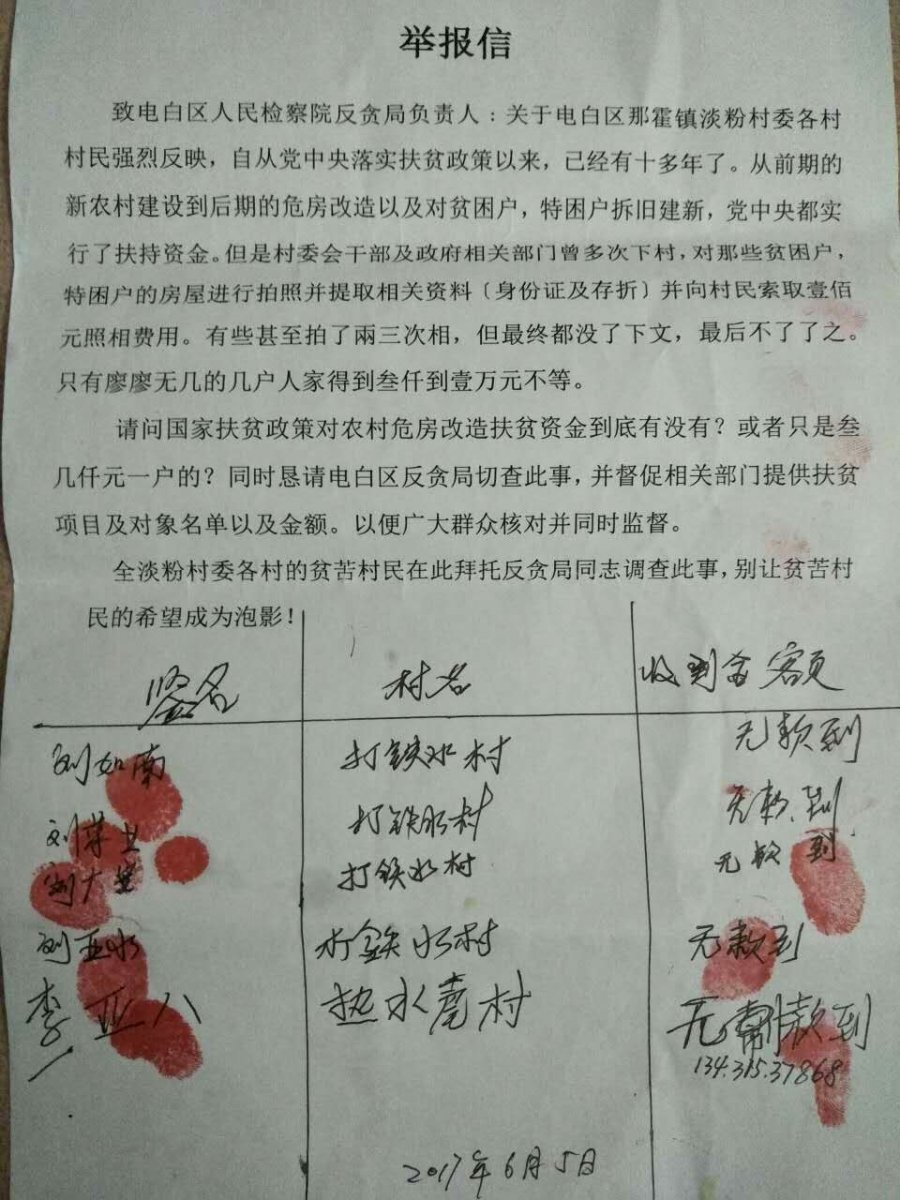 举报信
致电白区人民检察院反贪局负责人：关于电白区那霍镇淡粉村委各村
村民强烈反映，自从党中央落实扶贫政策以来，已经有十多年了。从前期的
新农村建设到后期的危房改造以及对贫困户，特困户拆旧建新，党中央都实
行了扶持资金。但是村委会干部及政府相关部门曾多次下村，对那些贫困户，
特困户的房屋进行拍照并提取相关资料〔身份证及存折〕并向村民索取壹佰
元照相费用。有些甚至拍了兩三次相，但最终都没了下文，最后不了了之。
只有廖廖无几的几户人家得到叁仟到壹万元不等。
请问国家扶贫政策对农村危房改造扶贫资金到底有没有？或者只是叁
几仟元一户的？同时恳请电白区反贪局切查此事，并督促相关部门提供扶贫
项目及对象名单以及金额。以便广大群众核对并同时监督。
全淡粉村委各村的贫苦村民在此拜托反贪局同志调查此事，别让贫苦村
民的希望成为泡影！
签名 村名 收到金额
刘如南 打铁水村 无款到
刘 打铁水村 无款到
刘大 打铁水村 无款到
刘亚水 打鉄水村 无款到
李亚八 热水村 无款到
134.315.37868
2017年6月5日